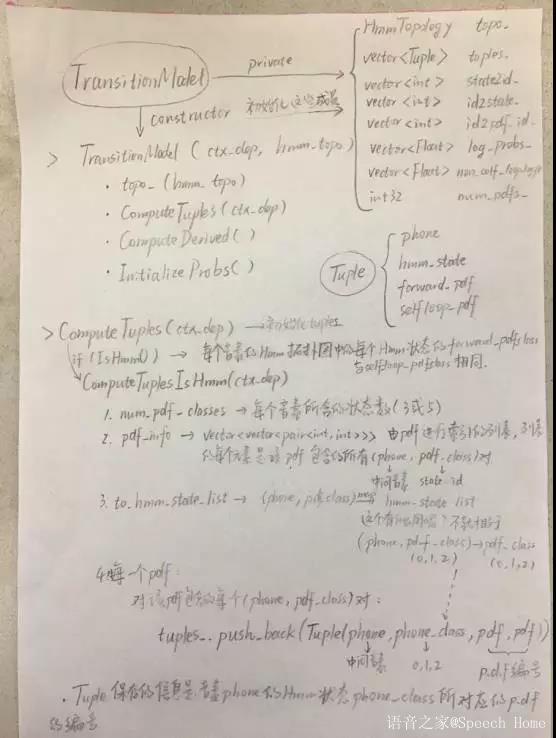 TransitionModel
private
HmmTopology topo_
vector<Tuple> tuples_
vector<int> state2id_
vector<int> id2state_
vector<int> id2pdf_id_
vector<Float> log_probs_
vector<Float>
int32 num_pdfs_
constructor 初始化这些成员
> TransitionModel (ctx_dep, hmm_topo)
· topo_(hmm_topo)
· ComputeTuples(ctx_dep)
· ComputeDerived()
· InitializeProbs()
Tuple
phone
hmm_state
forward_pdf
selfloop_pdf
> ComputeTuples(ctx_dep) → 初始化tuples
if (IsHmm()) → 每个音素的Hmm拓扑图中的每个Hmm状态的forward_pdfclass
与selfloop_pdfclass相同.
ComputeTuplesIsHmm(ctx_dep)
1. num_pdf_classes → 每个音素所含的状态数(3或5)
2. pdf_info → vector<vector<pair<int,int>>> 由pdf进行索引的列表, 列表
的每个元素是该pdf包含的所有(phone, pdf_class)对
中间音素 state_id
3. to_hmm_state_list → (phone, pdf_class) hmm_state_list
这个有啥用呢? 不就相当于
(phone, pdf_class)→pdf_class
(0,1,2) (0,1,2)
4. 每一个pdf:
对该pdf包含的每个(phone, pdf_class)对:
tuples_.push_back(Tuple(phone, phone_class, pdf, pdf))
中间音素 0,1,2 p.d.f编号
· Tuple保存的信息是音素phone的Hmm状态phone_class所对应的p.d.f
的编号
语音之家@Speech Home